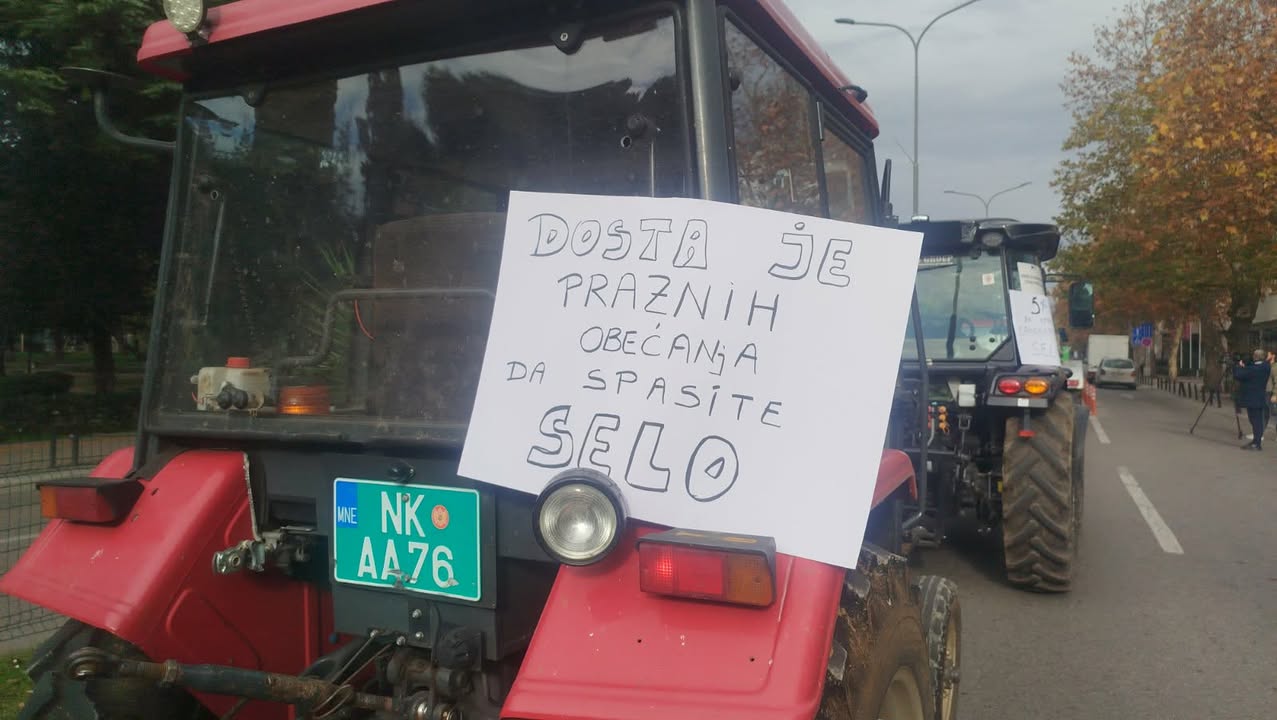 DOSTA JE
PRAZNIH
OBEĆANJA
DA SPASITE
SELO
MNE
NK
AA76
SELO